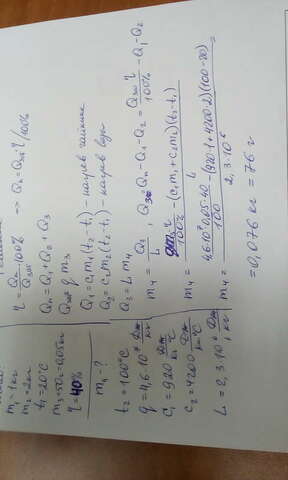 m₁ = 1кг
m₂ = 2кг
t₁ = 20°C
m₃ = 50г = 0,05кг
η = 40%
m₄ - ?
t₂ = 100°C
q = 4,6·10⁶ Дж/кг
c₁ = 920 Дж/кг °C
c₂ = 4200 Дж/кг °C
L = 2,3·10⁶ Дж/кг
η = Qп/Qзат 100% → Qп = Qзат η/100%
Qп = Q₁ + Q₂ + Q₃
Qзат = q m₃
Q₁ = c₁m₁(t₂-t₁) - нагрев чайника
Q₂ = c₂m₂(t₂-t₁) - нагрев воды
Q₃ = L m₄
m₄ = Q₃/L , Q₃ = Qп - Q₁ - Q₂ = Qзат η/100% - Q₁ - Q₂
m₄ = (qm₃ η/100% - (c₁m₁ + c₂m₂)(t₂-t₁))/L
m₄ = (4,6·10⁶·0,05·40/100 - (920·1 + 4200·2)(100-20))/2,3·10⁶
= 0,076 кг = 76 г